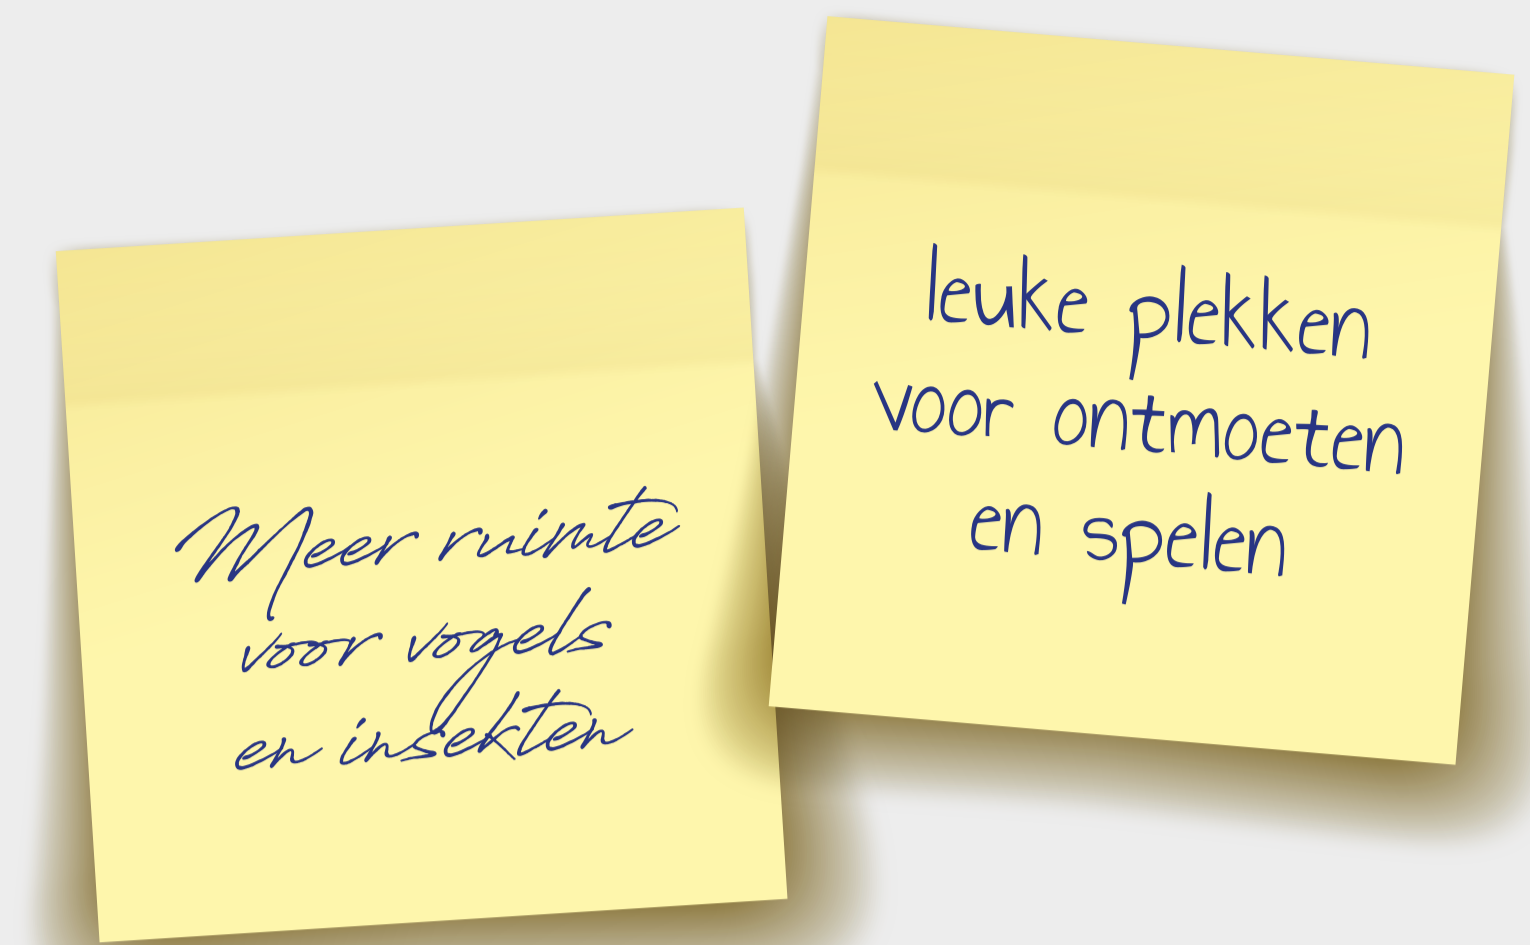 Meer ruimte
voor vogels
en insekten
leuke plekken
voor ontmoeten
en spelen